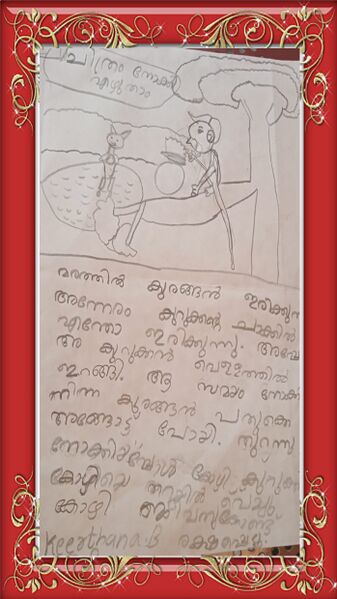 ചിത്രം നോക്കി
എഴുതാം
മരത്തിൽ കുരങ്ങൻ ഇരിക്കുന്ന
അന്നേരം കുറുക്കന്റെ ചാക്കിൽ
എന്തോ ഇരിക്കുന്നു. അപ്പോ
അ കുറുക്കൻ വെള്ളത്തിൽ
ഇറങ്ങി. ആ സമയം നോക്കി
നിന്ന കുരങ്ങൻ പതുക്കെ
അങ്ങോട്ട് പോയി. തുറന്നു
കോഴി കുറുക്ക
കോഴിയെ തറയിൽ വെച്ചു.
കോഴി
Keerthana.B രക്ഷപ്പെട്ടു.